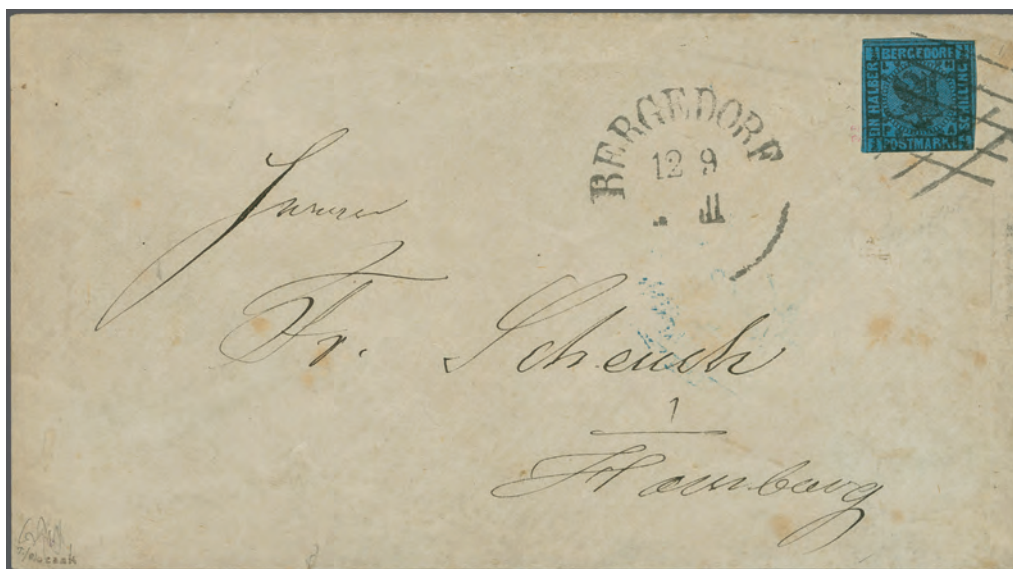 BERGEDORF
EIN HALBER
SCHILLING
POSTMARKE
BERGEDORF
12 9
III
Herrn
Fr. Scheuch
1
Hamburg